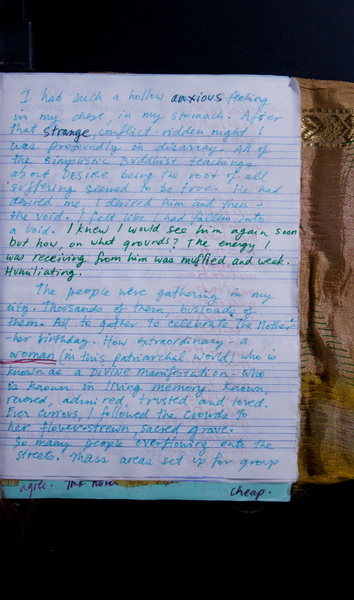 I had such a hollow anxious feeling
in my chest, in my stomach. After
that strange, conflict-ridden night I
was profoundly in disarray. All of
the simplistic Buddhist teachings
about DESIRE being the root of all
suffering seemed to be true. He had
desired me, I desired him and then -
the void. I felt like I had fallen into
a void. I knew I would see him again soon
but how, on what grounds? The energy I
was receiving from him was muffled and weak.
Humiliating.
The people were gathering in my
city. Thousands of them, busloads of
them. All to gather to celebrate The Mother
-her birthday. How extraordinary - a
woman (in this patriarchal world) who is
known as a DIVINE manifestation. Who
is known in living memory. Known,
revered, admired, trusted and loved.
Ever curious, I followed the crowds to
her flower-strewn, sacred grave.
So many people overflowing onto the
streets. Mass areas set up for group
cheap.